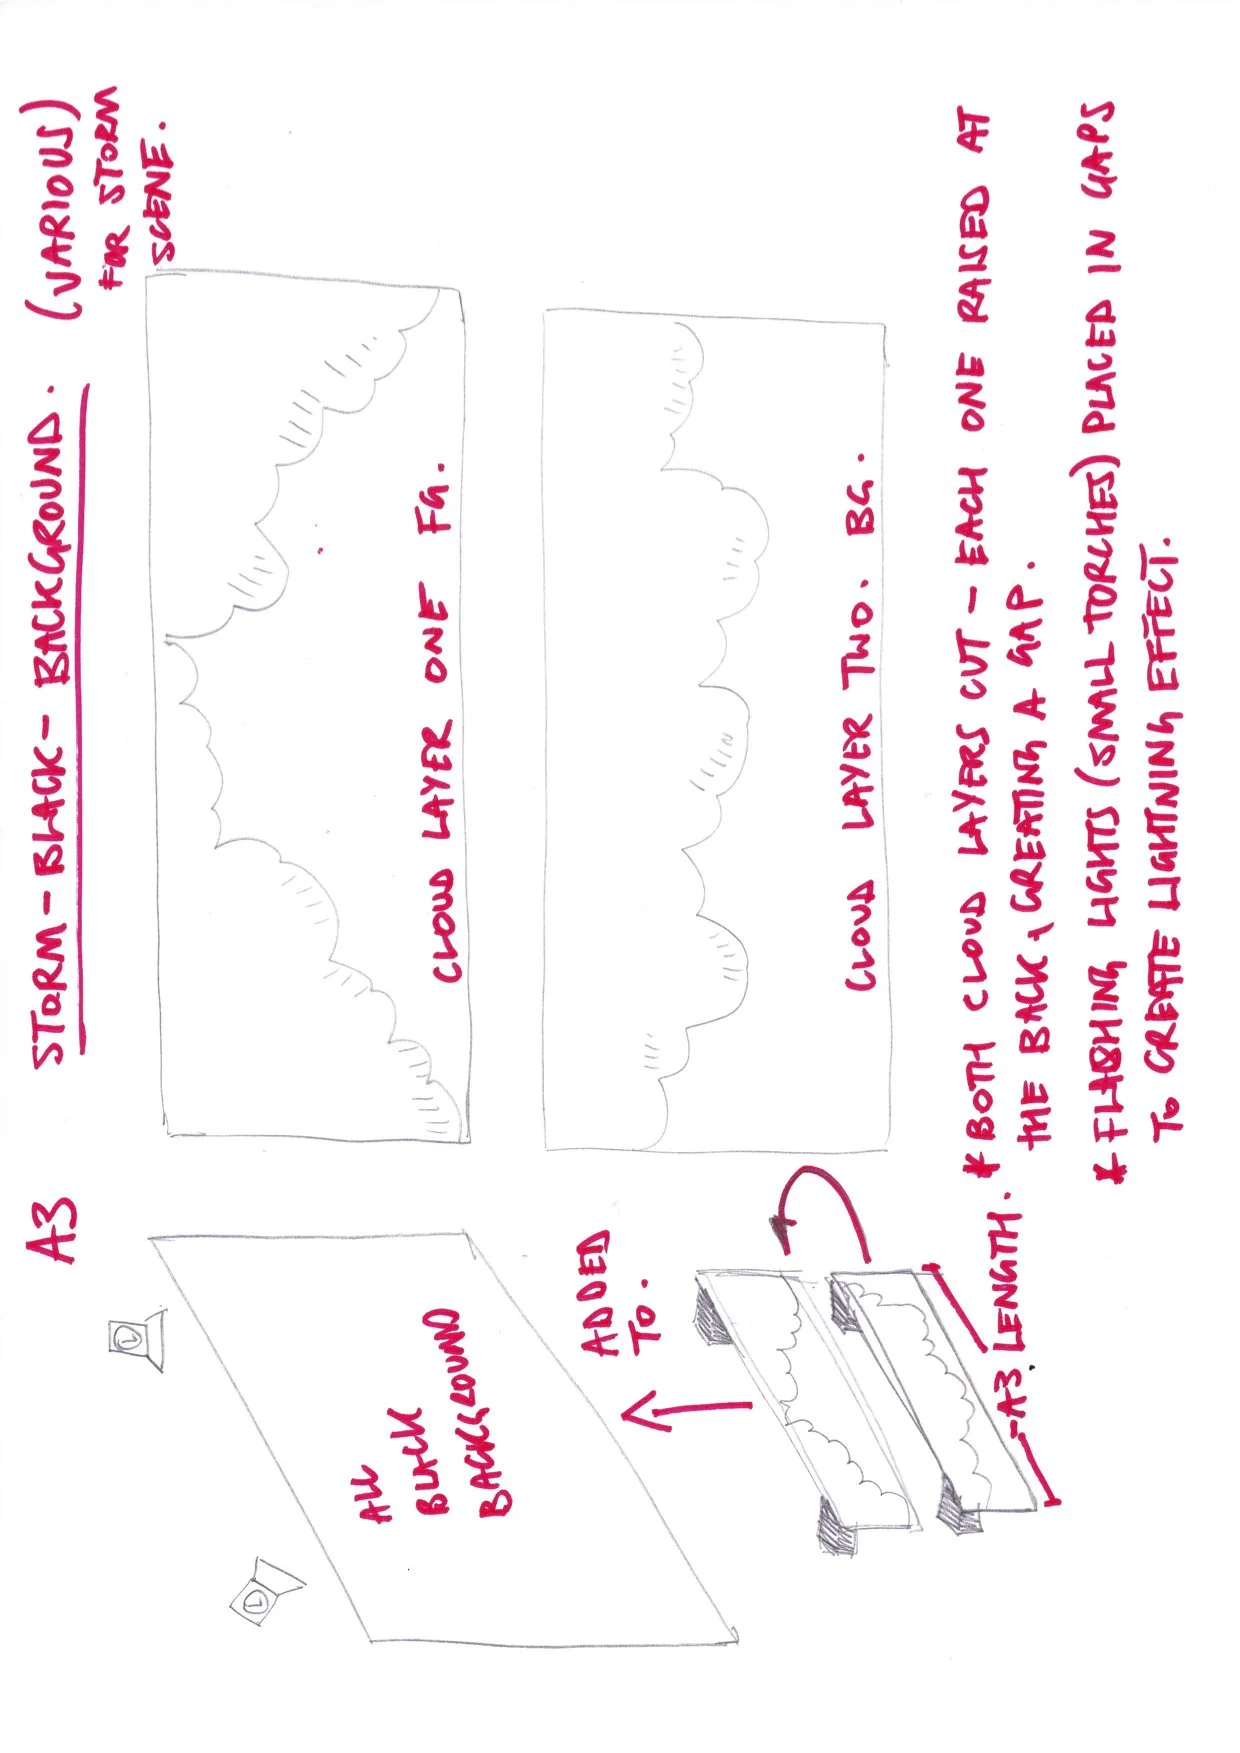 A3 STORM-BLACK-BACKGROUND. (VARIOUS)
FOR STORM
SCENE.
ALL
BLACK
BACKGROUND
CLOUD LAYER ONE FG.
ADDED
TO.
CLOUD LAYER TWO. BG.
A3 LENGTH.
* BOTH CLOUD LAYERS CUT - EACH ONE RAISED AT
THE BACK, CREATING A GAP.
* FLASHING LIGHTS (SMALL TORCHES) PLACED IN GAPS
TO CREATE LIGHTNING EFFECT.
L
L